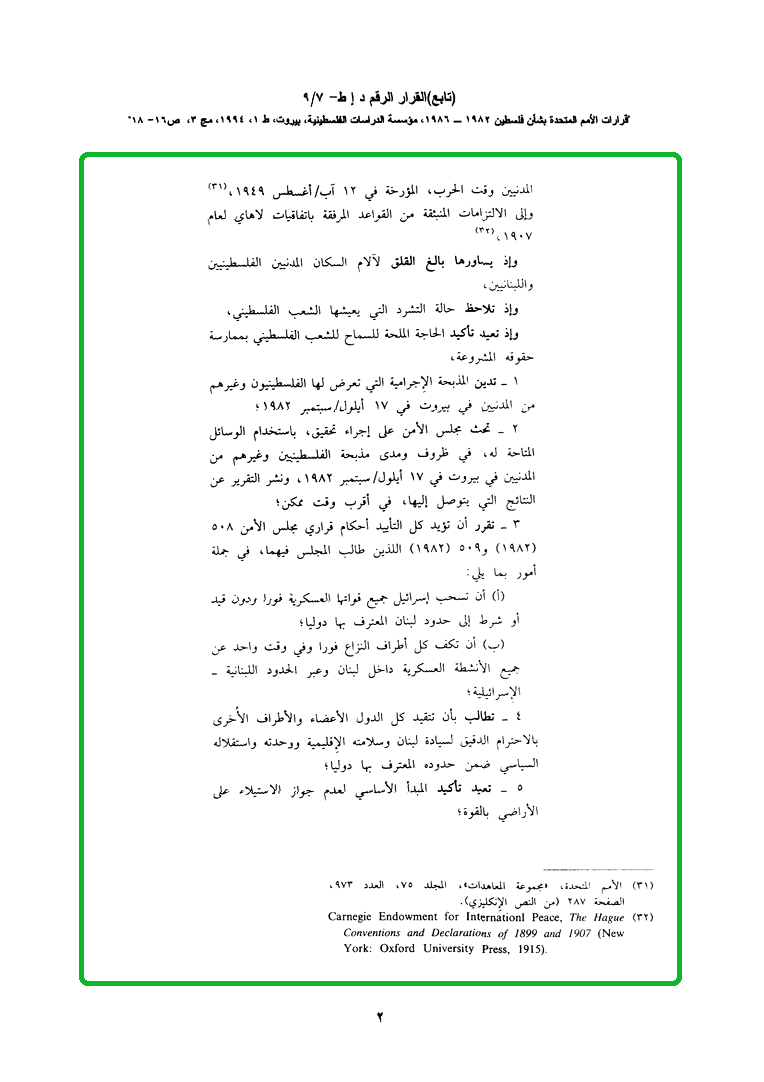 (تابع)القرار الرقم د إ ط- ٩/٧
"قرارات الأمم المتحدة بشأن فلسطين ١٩٨٢ – ١٩٨٦، مؤسسة الدراسات الفلسطينية، بيروت، ط ١، ١٩٩٤، مج ٣، ص١٦- ١٨"
المدنيين وقت الحرب، المؤرخة في ١٢ آب/أغسطس ١٩٤٩،(٣١)
وإلى الالتزامات المنبثقة من القواعد المرفقة باتفاقيات لاهاي لعام
١٩٠٧،(٣٢)
وإذ يساورها بالغ القلق لآلام السكان المدنيين الفلسطينيين
واللبنانيين،
وإذ تلاحظ حالة التشرد التي يعيشها الشعب الفلسطيني،
وإذ تعيد تأكيد الحاجة الملحة للسماح للشعب الفلسطيني بممارسة
حقوقه المشروعة،
١ ـ تدين المذبحة الإجرامية التي تعرض لها الفلسطينيون وغيرهم
من المدنيين في بيروت في ١٧ أيلول/سبتمبر ١٩٨٢؛
٢ ـ تحث مجلس الأمن على إجراء تحقيق، باستخدام الوسائل
المتاحة له، في ظروف ومدى مذبحة الفلسطينيين وغيرهم من
المدنيين في بيروت في ١٧ أيلول/سبتمبر ١٩٨٢، ونشر التقرير عن
النتائج التي يتوصل إليها، في أقرب وقت ممكن؛
٣ ـ تقرر أن تؤيد كل التأييد أحكام قراري مجلس الأمن ٥٠٨
(١٩٨٢) و٥٠٩ (١٩٨٢) اللذين طالب المجلس فيهما، في جملة
أمور بما يلي:
(أ) أن تسحب إسرائيل جميع قواتها العسكرية فورا ودون قيد
أو شرط إلى حدود لبنان المعترف بها دوليا؛
(ب) أن تكف كل أطراف النزاع فورا وفي وقت واحد عن
جميع الأنشطة العسكرية داخل لبنان وعبر الحدود اللبنانية ـ
الإسرائيلية؛
٤ ـ تطالب بأن تتقيد كل الدول الأعضاء والأطراف الأخرى
بالاحترام الدقيق لسيادة لبنان وسلامته الإقليمية ووحدته واستقلاله
السياسي ضمن حدوده المعترف بها دوليا؛
٥ ـ تعيد تأكيد المبدأ الأساسي لعدم جواز الاستيلاء على
الأراضي بالقوة؛
(٣١) الأمم المتحدة، «مجموعة المعاهدات»، المجلد ٧٥، العدد ٩٧٣،
الصفحة ٢٨٧ (من النص الإنكليزي).
Carnegie Endowment for Internationl Peace, The Hague (٣٢)
Conventions and Declarations of 1899 and 1907 (New
York: Oxford University Press, 1915).
٢